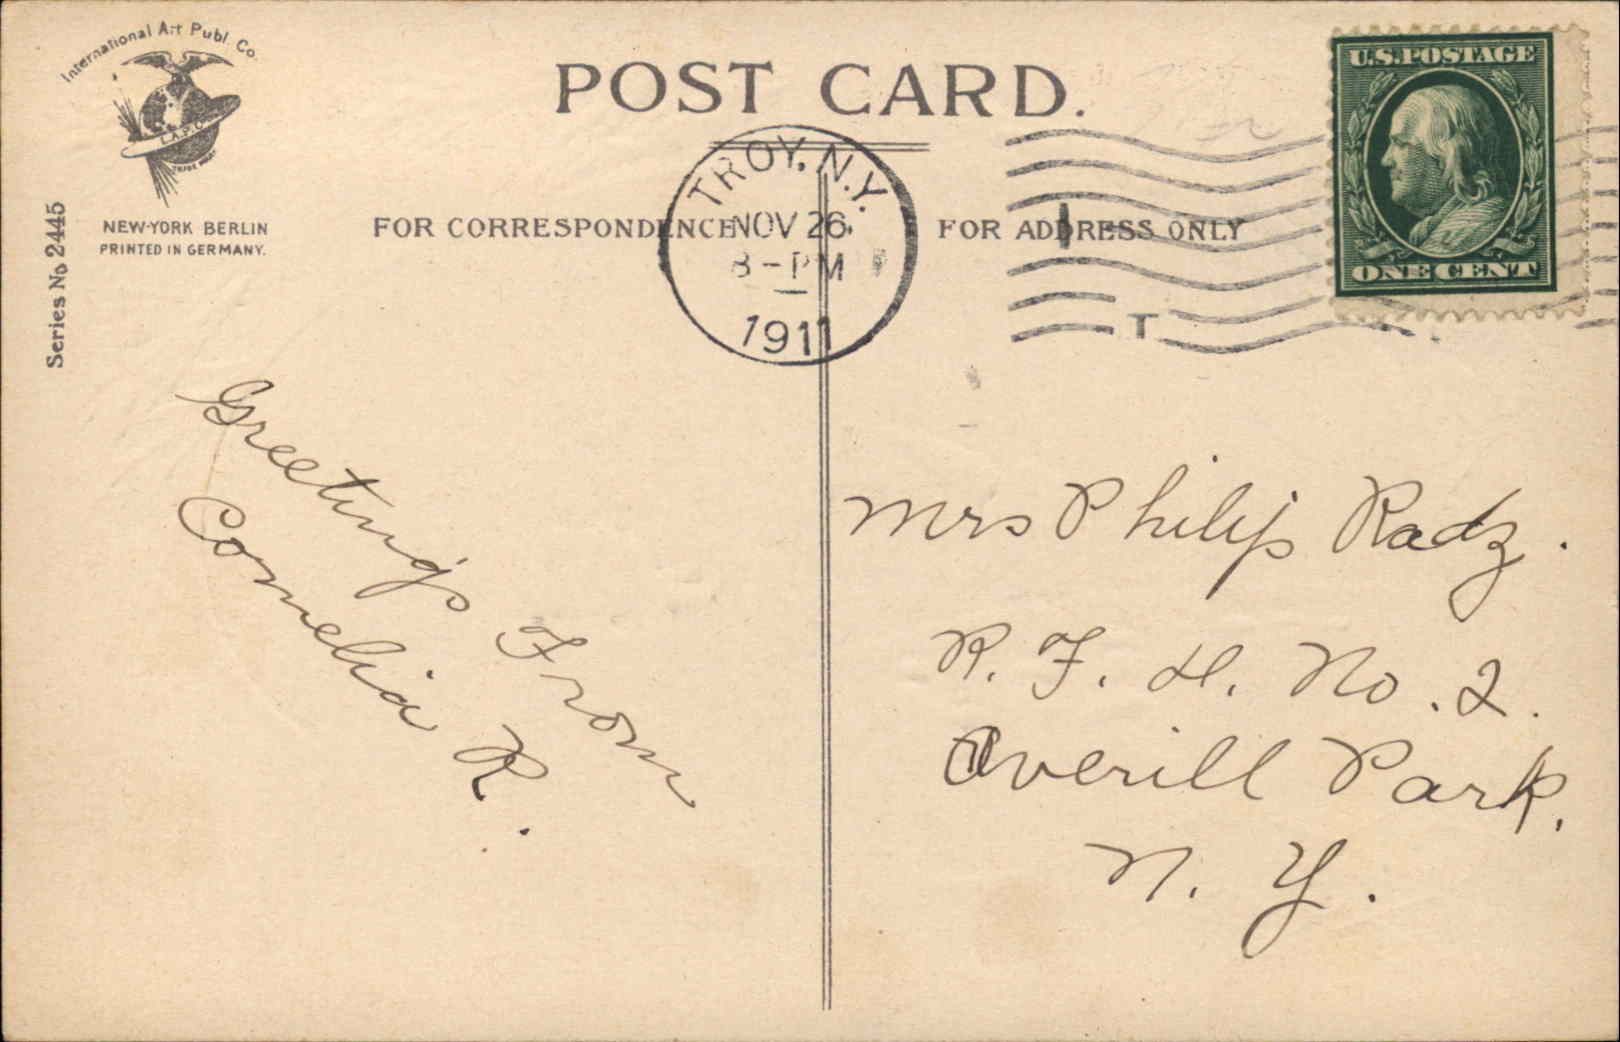 International Art Publ. Co.
I.A.P.C.
TRADE MARK
NEW-YORK BERLIN
PRINTED IN GERMANY.
Series No 2445
POST CARD.
FOR CORRESPONDENCE
FOR ADDRESS ONLY
TROY, N.Y.
NOV 26
8-PM
1911
T
U.S. POSTAGE
ONE CENT
Greetings From
Cornelia R.
Mrs Philip Radz.
R. F. D. No. 2.
Averill Park,
N. Y.